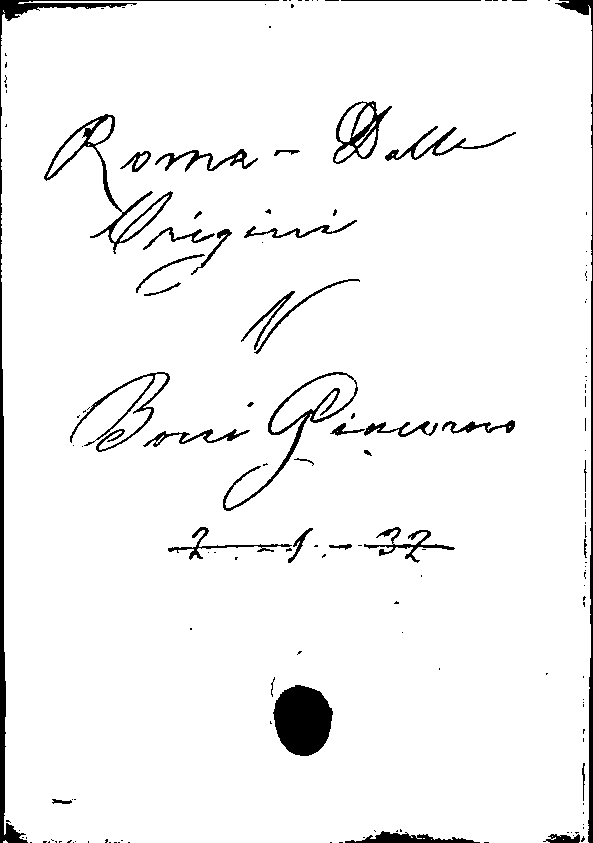 Roma - Dalle
Origini
V
Boni Giacomo
2 - 1 - 32